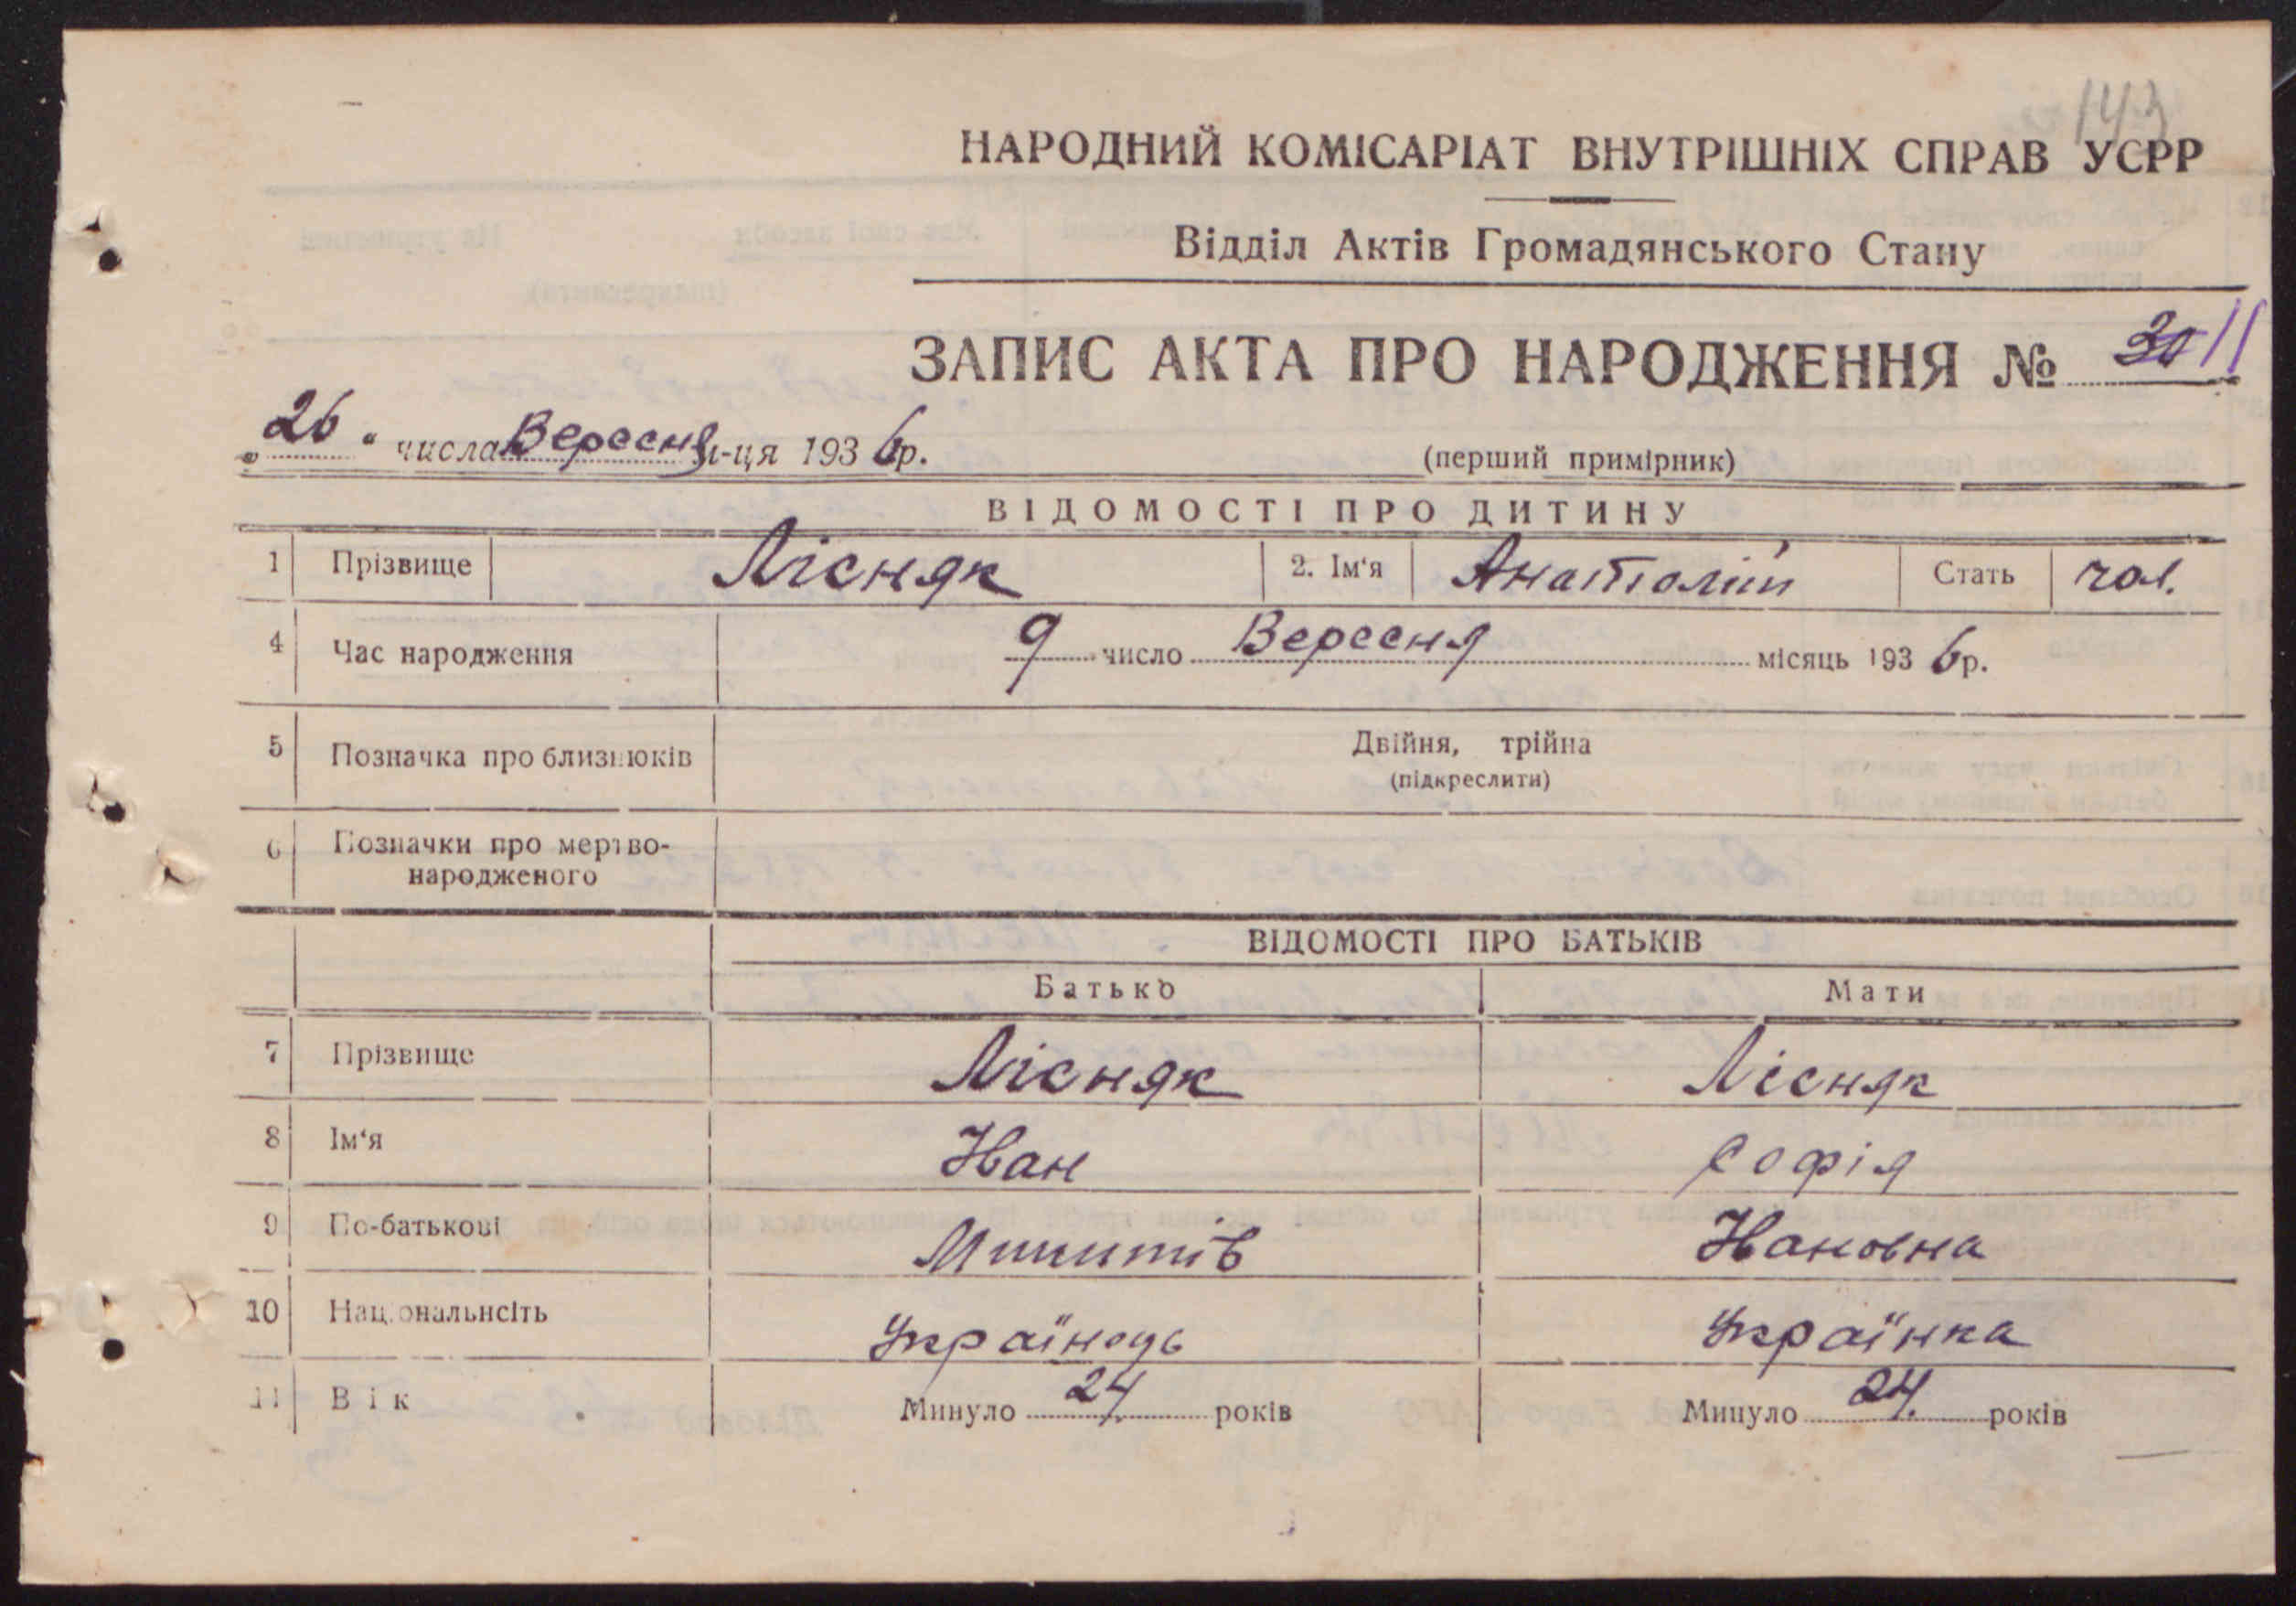 143
НАРОДНИЙ КОМІСАРІАТ ВНУТРІШНІХ СПРАВ УСРР
Відділ Актів Громадянського Стану
ЗАПИС АКТА ПРО НАРОДЖЕННЯ № 30 11
„ 26 “ числа Вересня м-ця 1936 р.
(перший примірник)
ВІДОМОСТІ ПРО ДИТИНУ
1 Прізвище Лісняк 2. Ім‘я Анатолій Стать чол.
4 Час народження 9 число Вересня місяць 1936 р.
5 Позначка про близнюків Двійня, трійна
(підкреслити)
6 Позначки про мертво-
народженого
ВІДОМОСТІ ПРО БАТЬКІВ
Батько Мати
7 Прізвище Лісняк Лісняк
8 Ім‘я Іван Софія
9 По-батькові Микитів Івановна
10 Національнсіть Українець Українка
11 Вік Минуло 24 років Минуло 24. років